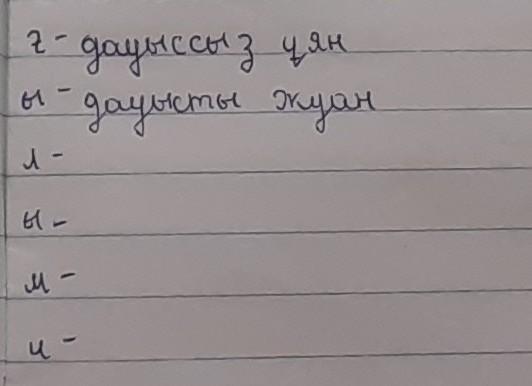 ғ - дауыссыз ұян
ы - дауысты жуан
л -
ы -
м -
и -